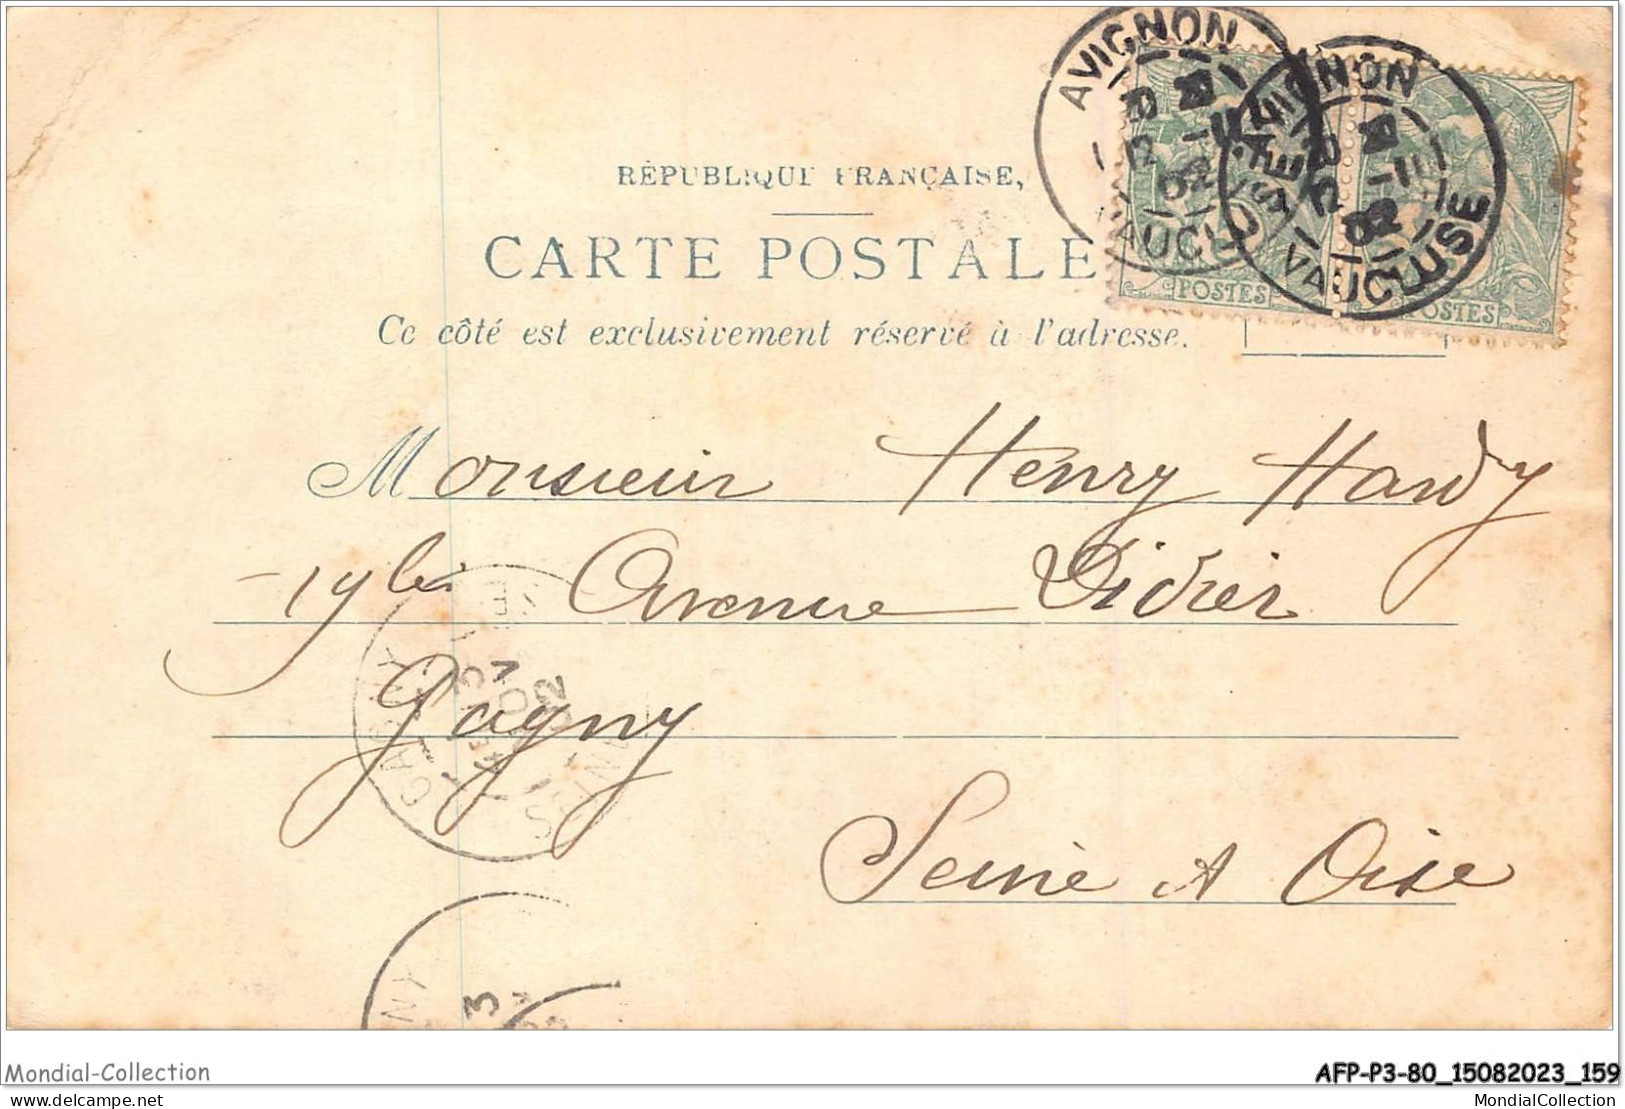 AVIGNON
VAUCLUSE
AVIGNON
VAUCLUSE
POSTES
POSTES
RÉPUBLIQUE FRANÇAISE,
CARTE POSTALE
Ce côté est exclusivement réservé à l'adresse.
Monsieur Henry Hardy
Avenue Didier
Gagny
Seine & Oise
GAGNY
Mondial-Collection
AFP-P3-80_15082023_159
delcampe.net
MondialCollection